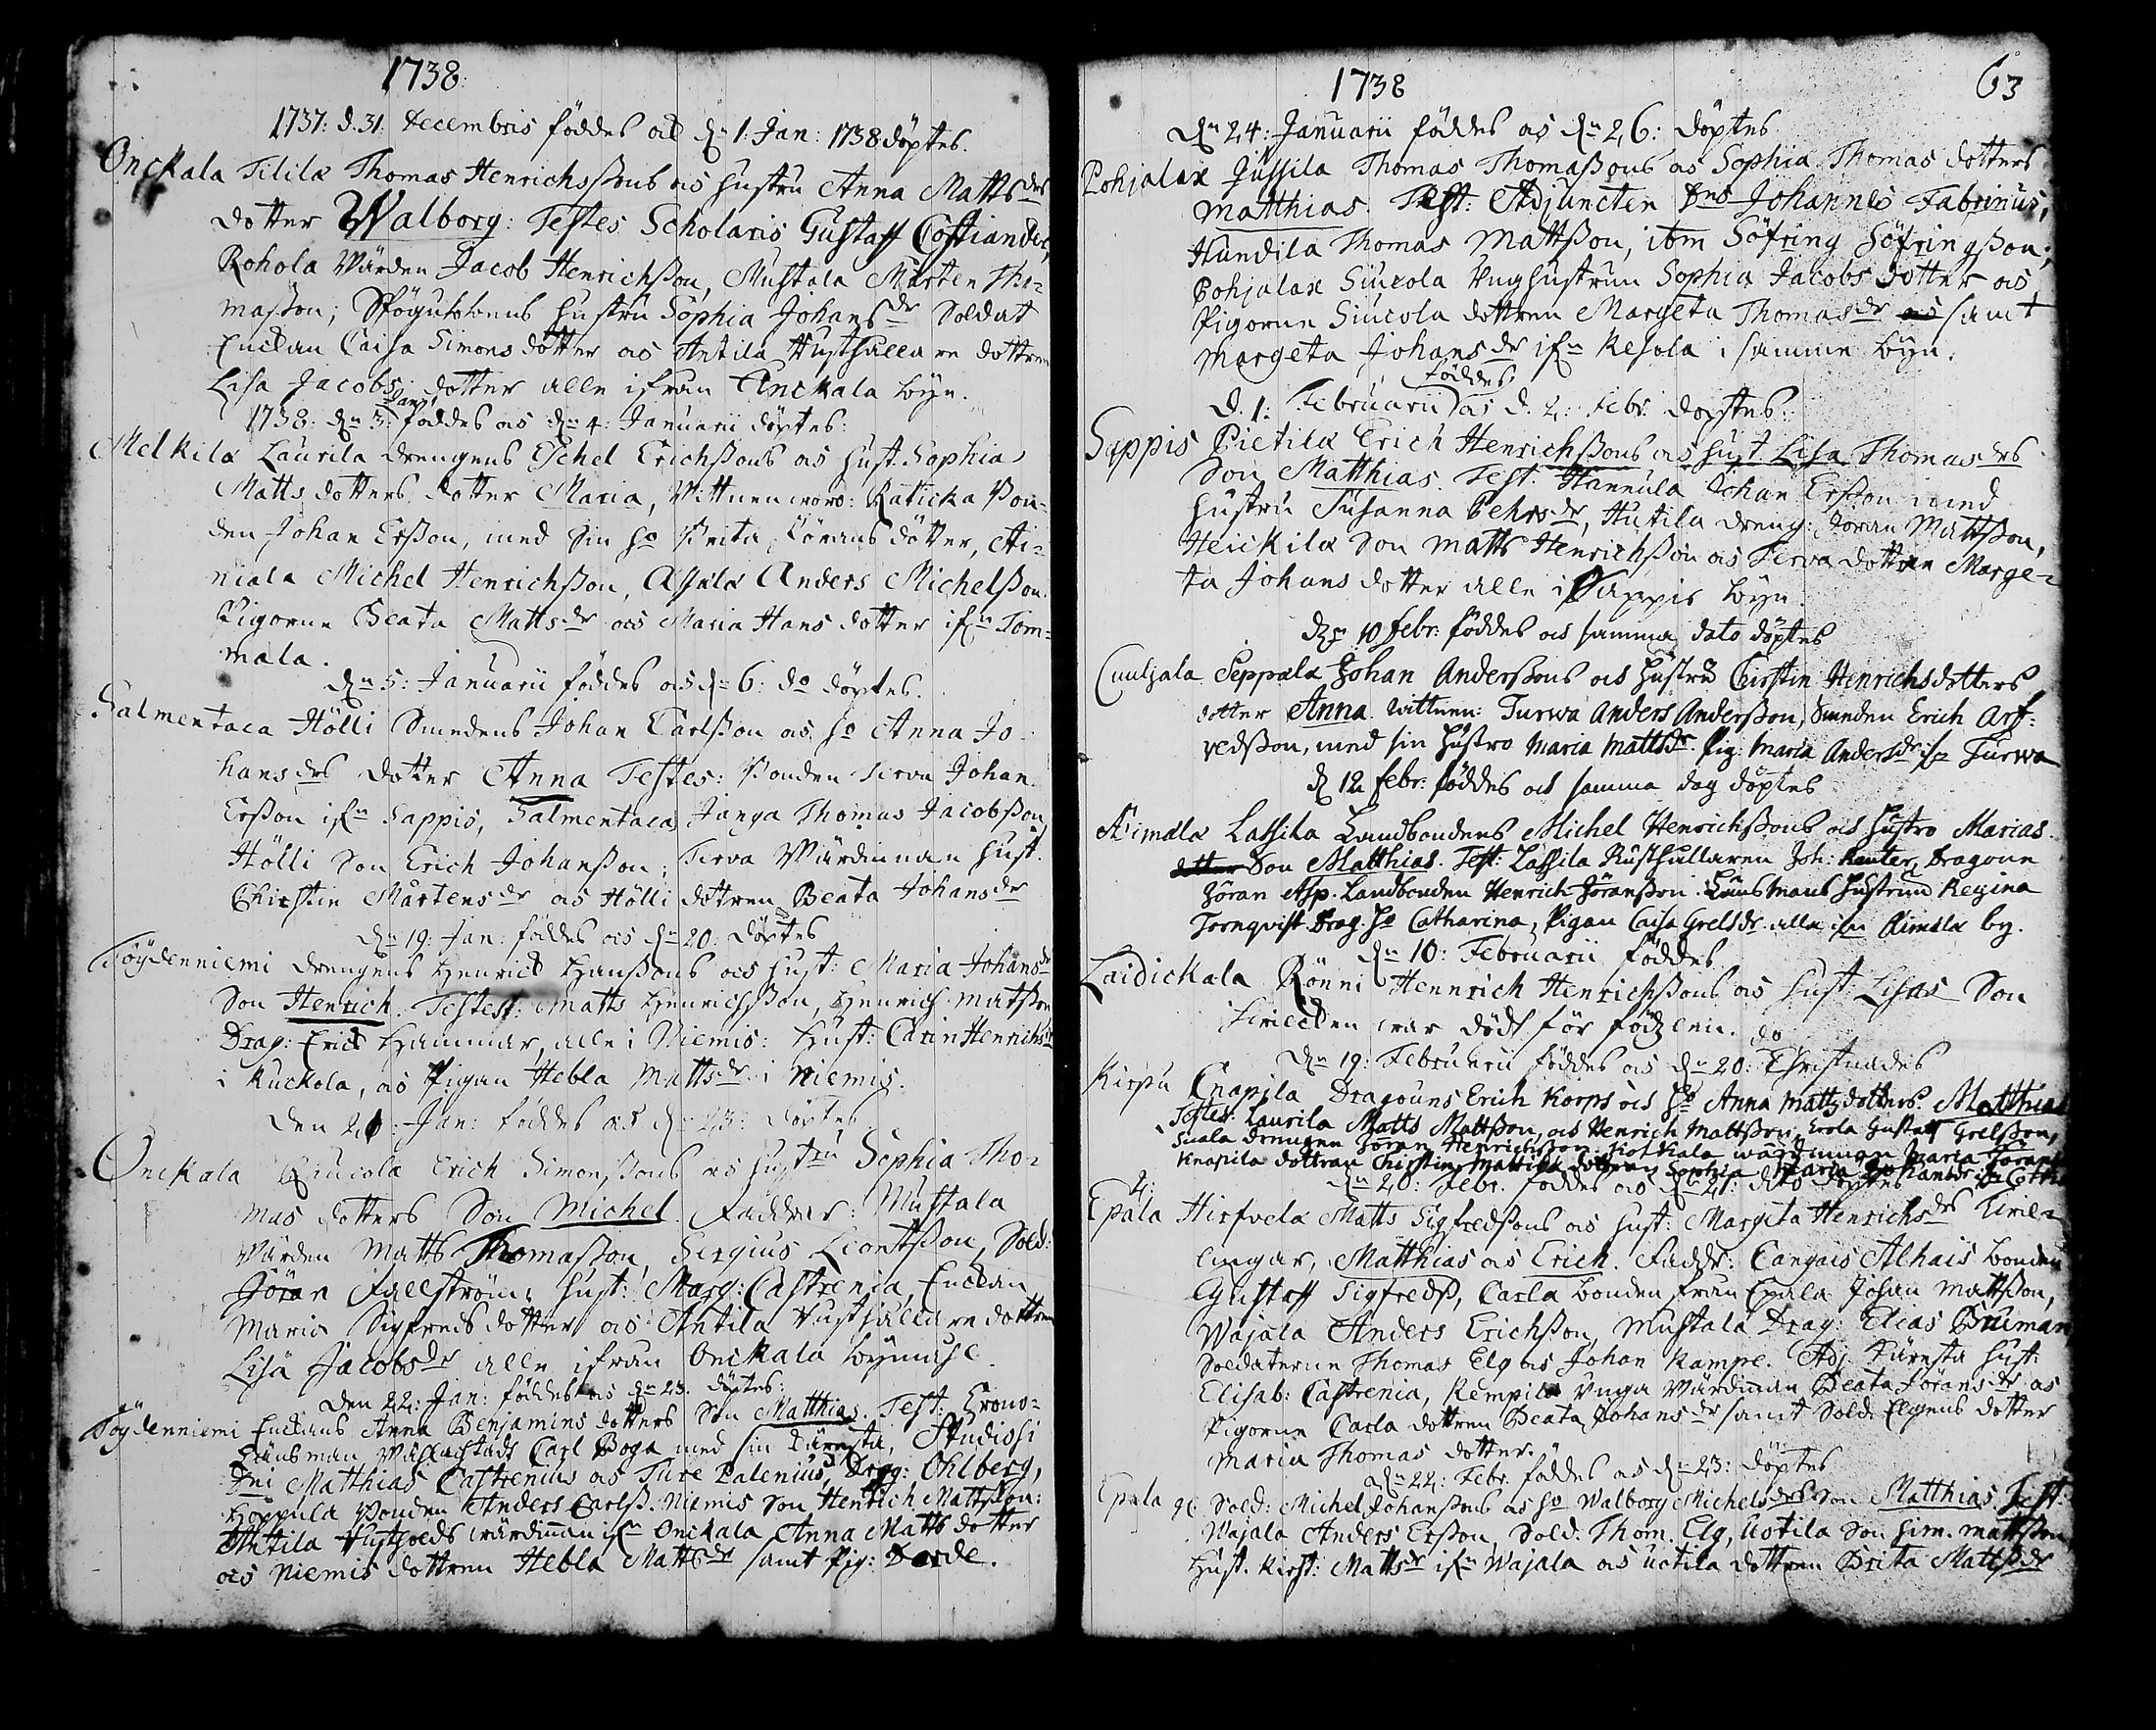 1738:
1737: d. 31: Decembris föddes och dn 1: Jan: 1738 döptes.
Onckala Tilila Thomas Henrichssons och hustru Anna Matts drs
dotter Walborg: Testes Scholaris Gustaff Costiander,
Rohola Värden Jacob Henrichsson, Mustala Mårten Tho-
masson; hustru Sophia Johans dr Soldat
Enckan Caisa Simons dotter och Antila Rusthållare dottren
Lisa Jacobs dotter alle ifrån Onckala byn.
1738: dn 3: Janu: föddes och dn 4: Januarii döptes:
Melkila Laurila drengens Eschel Erichssons och hust. Sophia
Matts dotters dotter Maria, Vittnen woro: Raticka Bon-
den Johan Ersson, med sin ho Brita Jörans dotter, Ai-
niala Michel Henrichsson, Asula Anders Michelsson.
Pigorne Beata Matts dr och Maria Hans dotter ifn Tom-
mala.
dn 5: Januarii föddes och dn 6: do döptes.
Salmentaca Hölli Smedens Johan Carlsson och ho Anna Jo-
hans drs dotter Anna Testes: Bonden Terva Johan
Ersson ifn Sappis, Salmentaca Janga Thomas Jacobsson
Hölli Son Erich Johansson; Terva Värdinnan hust.
Christin Mårtens dr och Hölli dottren Beata Johans dr
dn 19: Jan: föddes och dn 20: döptes
Töydenniemi drengens Henrich Hanssons och hust: Maria Johans dr
Son Henrich. Testes: Matts Henrichsson, Henrich Matsson
Drag: Erich Hammar, alle i Niemis: Hust: Carin Henrichs dr
i Kuckola, och Pigan Hebla Matts dr i Niemis.
den 21: Jan: föddes och dn 23: döptes
Onckala Erich Simonssons och hustru Sophia Tho-
mas dotters Son Michel. Faddrar: Mustala
Värden Matts Thomasson, Sergius Leontsson, Sold:
Jöran Fallström; hust: Marg: Castrenia, Enckan
Maria Sigfreds dotter och Antila Rusthållare dottren
Lisa Jacobs dr alle ifrån Onckala
den 22: Jan: föddes och dn 23. döptes:
Töydenniemi Enckans Anna Benjamins dotters Son Matthias. Test: Crono-
Länsman Carl Boga med sin Käresta, Studiosi
Dni Matthias Castrenius och Ture Palenius, Drag: Ohlberg,
Hoppula Bonden Anders Carlss. Niemis Son Henrich Mattsson:
Antila Rustholds wärdinnan ifn Onckala Anna Matts dotter
och Niemis dottren Hebla Matts dr samt Pig: Borde.
1738
63
dn 24: Januarii föddes och dn 26: döptes
Pohjalax Jussila Thomas Thomassons och Sophia Thomas dotters
Matthias. Test: Adjuncten Dns Johannes Fabrinius,
Hundila Thomas Mattsson, itm Söfring Söfringsson;
Pohjalax Siucola Unghustrun Sophia Jacobs dotter och
Pigorne Siucola dottren Margeta Thomas dr och samt
Margeta Johans dr ifn Kesola i samma byn.
föddes
d. 1: Februarii och d. 2: Febr. döptes.
Sappis Pietila Erich Henrichssons och hust Lisa Thomas drs
Son Matthias. Test: Hannula Johan Ersson med
hustru Susanna Pehrs dr, Hutila dreng: Jöran Mattsson,
Heickila Son Matts Henrichsson och Terva dottren Marge-
ta Johans dotter alle i Sappis byn.
den 10 febr: föddes och samma dato döptes
Cuuljala Seppala Johan Anderssons och hustru Chirstin Henrichsdotters
dotter Anna. wittnen: Turwa Anders Andersson, Smeden Erich Arf-
vedsson, med sin hustro Maria Mattsdr. Pig. Maria Andersdr ifn Turwa
d 12 febr: föddes och samma dag döptes
Aimäla Lassila Landbondens Michel Henrichssons och hustro Marias
dotter Son Matthias. Test: Lassila Rusthållaren Joh: Ranter, Dragone
Jöran Asp. Landbonden Henrich Jöransson. Länsmans hustrun Regina
Tornqvist. Drag. ho Catharina, Pigan Caisa Grelsdr. alla ifn Aimäla by.
dn 10: Februarii föddes
Laidickala Rönni Hennrich Henrichssons och hust: Lisas Son
hwilcken war död för födslen.
do
dn 19: Februarii föddes och dn 20: Christnades
Kirpu Cnapila Dragouns Erich Korps och ho Anna Mattzdotters. Matthias
Testes: Laurila Matts Mattsson, och Henrich Mattsson, Erola Gustaff Grelsson,
Suala Drengen Jöran Henrichsson, Kiotkala wärdinnan Maria Jörans
Knapila dottran Chirstin, Mattila dottran Sophia Maria Johansdr
dn 20: Febr. föddes och dn 21: dito döptes
2:
Epala Hirfvela Matts Sigfredssons och hust: Margeta Henrichs drs twil-
lingar, Matthias och Erich. Faddr: Cangais Alhais bonden
Gustaff Sigfredss, Carla bonden från Epala Johan Mattsson,
Wajala Anders Erichsson, Mustala Drag: Elias Bruman
Soldaterne Thomas Elg och Johan Kampe. Adj. Käresta hust:
Elisab: Castrenia, Kempila Unga Värdinnan Beata Jörans dr och
Pigorne Carla dottren Beata Johans dr samt Sold: Elgens dotter
Maria Thomas dotter.
dn 22: Febr. föddes och dn 23: döptes
Epala Sold: Michel Johanssons och ho Walborg Michels drs Son Matthias. Test:
Wajala Anders Ersson, Sold: Thom. Elg, Uotila Son Sim. Mattsson
Hust. Kirst: Matts dr ifn Wajala och Uotila dottren Brita Matts dr